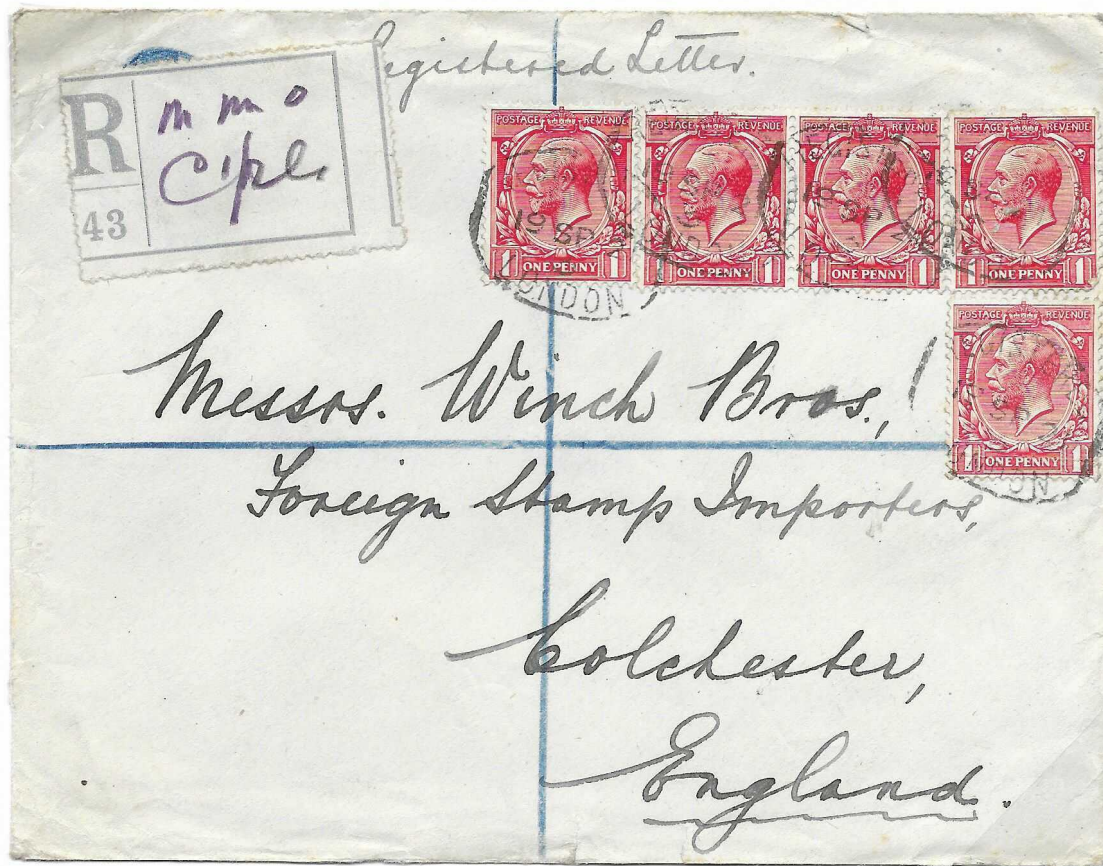 Registered Letter.
R
43
m m o
Cple
POSTAGE REVENUE
ONE PENNY
1 1
POSTAGE REVENUE
ONE PENNY
1 1
POSTAGE REVENUE
ONE PENNY
1 1
POSTAGE REVENUE
ONE PENNY
1 1
19 SP
LONDON
18 SP
POSTAGE REVENUE
ONE PENNY
1 1
Messrs. Winch Bros.,
Foreign Stamp Importers,
Colchester,
England.